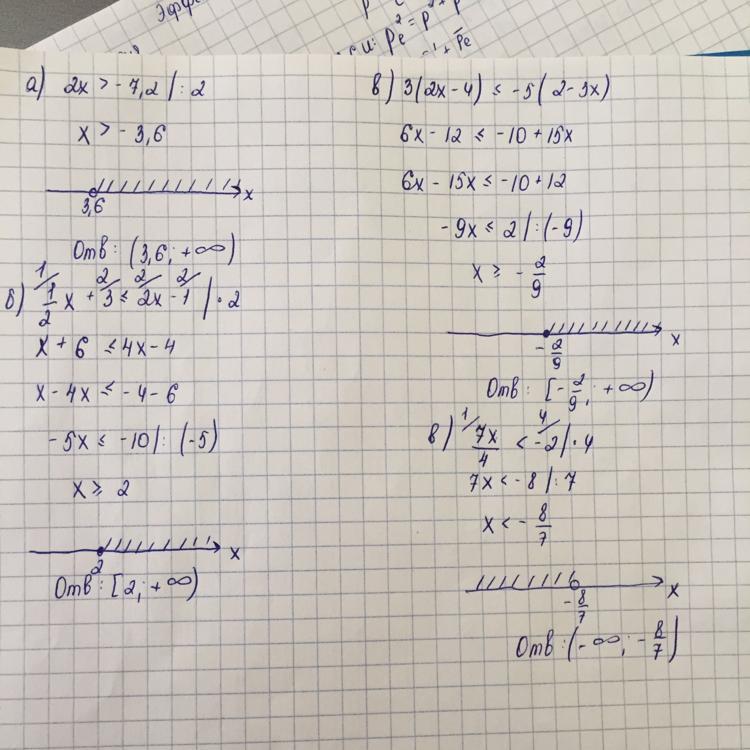 Эфф
Pe² = P² + P
а) 2x > -7,2 | : 2
x > -3,6
3,6 x
Отв: (3,6; +∞)
1/ 2/ 2/ 2/
б) 1/2 x + 3 ≤ 2x - 1 | · 2
x + 6 ≤ 4x - 4
x - 4x ≤ -4 - 6
-5x ≤ -10 | : (-5)
x ≥ 2
2 x
Отв: [2; +∞)
в) 3(2x - 4) ≤ -5(2 - 3x)
6x - 12 ≤ -10 + 15x
6x - 15x ≤ -10 + 12
-9x ≤ 2 | : (-9)
x ≥ - 2/9
- 2/9 x
Отв: [- 2/9; +∞)
1/ 4/
в) 7x/4 < -2 | · 4
7x < -8 | : 7
x < - 8/7
- 8/7 x
Отв: (-∞; - 8/7)